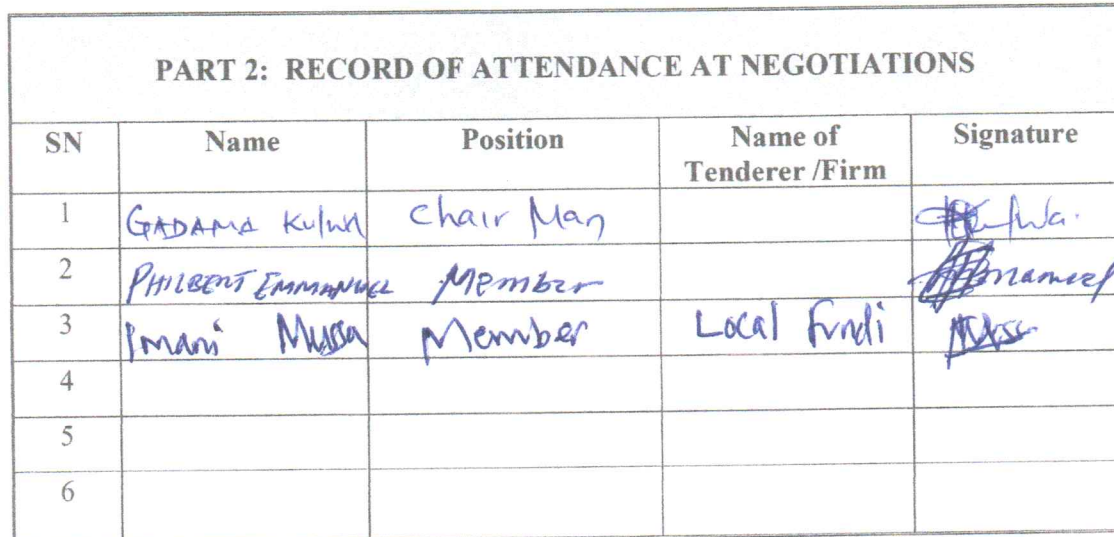 PART 2: RECORD OF ATTENDANCE AT NEGOTIATIONS
SN Name Position Name of Tenderer /Firm Signature
1 GADAMA Kulwa Chair Man
2 PHILBERT EMMANUEL Member
3 Imani Mussa Member Local Fundi
4
5
6